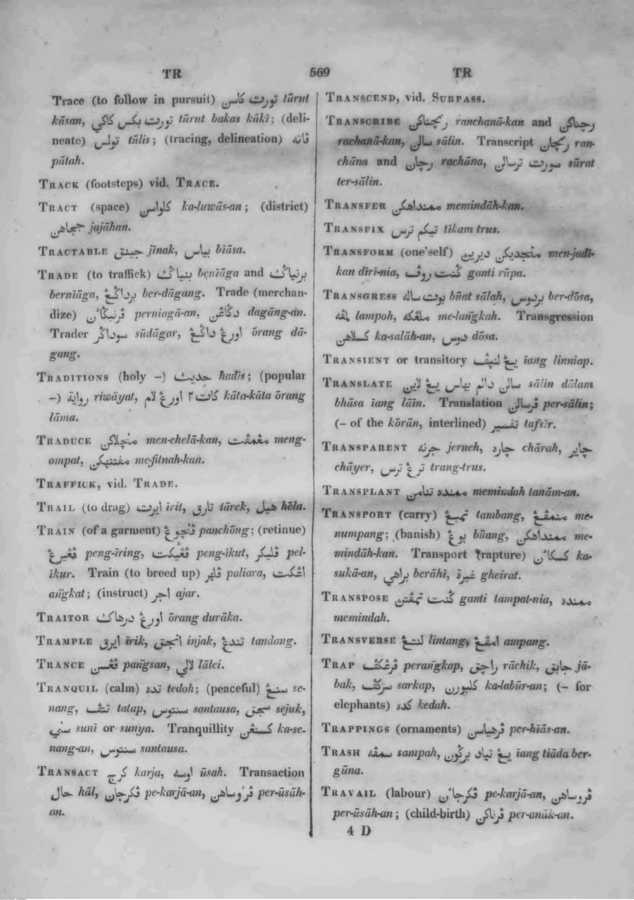 TR 569 TR
Trace (to follow in pursuit) تورت کاسن tūrut
kāsan, تورت بکس کاکي tūrut bakas kāki; (deli-
neate) تولس tūlis; (tracing, delineation) ڤاته
pātah.
TRACK (footsteps) vid. TRACE.
TRACT (space) کلواسن ka-luwās-an; (district)
ججاهن jajāhan.
TRACTABLE جينق jīnak, بياس biāsa.
TRADE (to traffick) بنياݢ beniāga and برنياݢ
berniāga, برداݢڠ ber-dāgang. Trade (merchan-
dize) ڤرنيݢاءن perniagā-an, دݢاڠن dagāng-an.
Trader سوداݢر sūdāgar, اورڠ داݢڠ ōrang dā-
gang.
TRADITIONS (holy –) حديث hadīs; (popular
–) رواية riwāyat, کات٢ اورڠ لام kāta-kāta ōrang
lāma.
TRADUCE منچلاکن men-chelā-kan, مڠومڤت meng-
ompat, مفتنهکن me-fitnah-kan.
TRAFFICK, vid. TRADE.
TRAIL (to drag) ايرت irit, تارق tārek, هيل hēla.
TRAIN (of a garment) ڤنچوڠ panchōng; (retinue)
ڤڠيرڠ peng-īring, ڤڠيکت peng-īkut, ڤليکر pel-
īkur. Train (to breed up) ڤلهار paliara, اڠکت
angkat; (instruct) اجر ajar.
TRAITOR اورڠ درهاک ōrang durāka.
TRAMPLE ايرق īrik, انجق injak, تندڠ tandang.
TRANCE ڤڠسن pangsan, لالي lālei.
TRANQUIL (calm) تده tedoh; (peaceful) سنڠ se-
nang, تتڤ tatap, سنتوس santausa, سجق sejuk,
سني suni or sunya. Tranquillity کسنڠن ka-se-
nang-an, سنتوس santausa.
TRANSACT کرج karja, اوسه ūsah. Transaction
حال hāl, ڤکرجان pe-karjā-an, ڤروساهن per-ūsāh-
an.
TRANSCEND, vid. SURPASS.
TRANSCRIBE رنچناکن ranchanā-kan and رچناکن
rachanā-kan, سالن sālin. Transcript رنچان ran-
chāna and رچان rachāna, سورت ترسالن sūrat
ter-sālin.
TRANSFER ممنداهکن memindāh-kan.
TRANSFIX تيکم ترس tīkam trus.
TRANSFORM (one'self) منجديکن ديرين men-jadī-
kan dīri-nia, ݢنت روڤ ganti rūpa.
TRANSGRESS بوت ساله būat sālah, بردوس ber-dōsa,
لمڤه lampoh, ملڠکه me-langkah. Transgression
کسلاهن ka-salāh-an, دوس dōsa.
TRANSIENT or transitory يڠ لنيڤ iang linniap.
TRANSLATE سالن دالم بهاس يڠ لاين sālin dālam
bhāsa iang lāin. Translation ڤرسالن per-sālin;
(– of the korān, interlined) تفسير tafsīr.
TRANSPARENT جرنه jerneh, چاره chārah, چاير
chāyer, ترڠ ترس trang-trus.
TRANSPLANT ممنده تنامن memindah tanām-an.
TRANSPORT (carry) تمبڠ tambang, منمڤڠ me-
numpang; (banish) بوڠ būang, ممنداهکن me-
mindāh-kan. Transport (rapture) کسکاءن ka-
sukā-an, براهي berāhi, غيرة gheirat.
TRANSPOSE ݢنت تمڤتن ganti tampat-nia, ممنده
memindah.
TRANSVERSE لنتڠ lintang, امڤڠ ampang.
TRAP ڤرڠکڤ perangkap, راچق rāchik, جابق jā-
bak, سرکڤ sarkap, کلبورن ka-labūr-an; (– for
elephants) کده kedah.
TRAPPINGS (ornaments) ڤرهياسن per-hiās-an.
TRASH سمڤه sampah, يڠ تياد برݢون iang tiāda ber-
gūna.
TRAVAIL (labour) ڤکرجاءن pe-karjā-an, ڤروساهن
per-ūsāh-an; (child-birth) ڤرناکن per-anāk-an.
4 D